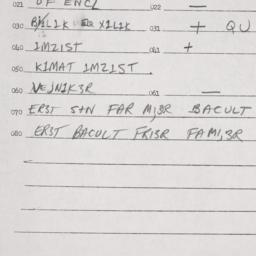 021 OF ENCL 022 —
030 XILIK 031 + QU
040 IMZIST 041 +
050 KIMAT IMZIST.
060 VEJNIK3R 061 —
070 ERST S+N FAR MI3R BACULT
080 ERST BACULT FRI3R FAMI3R